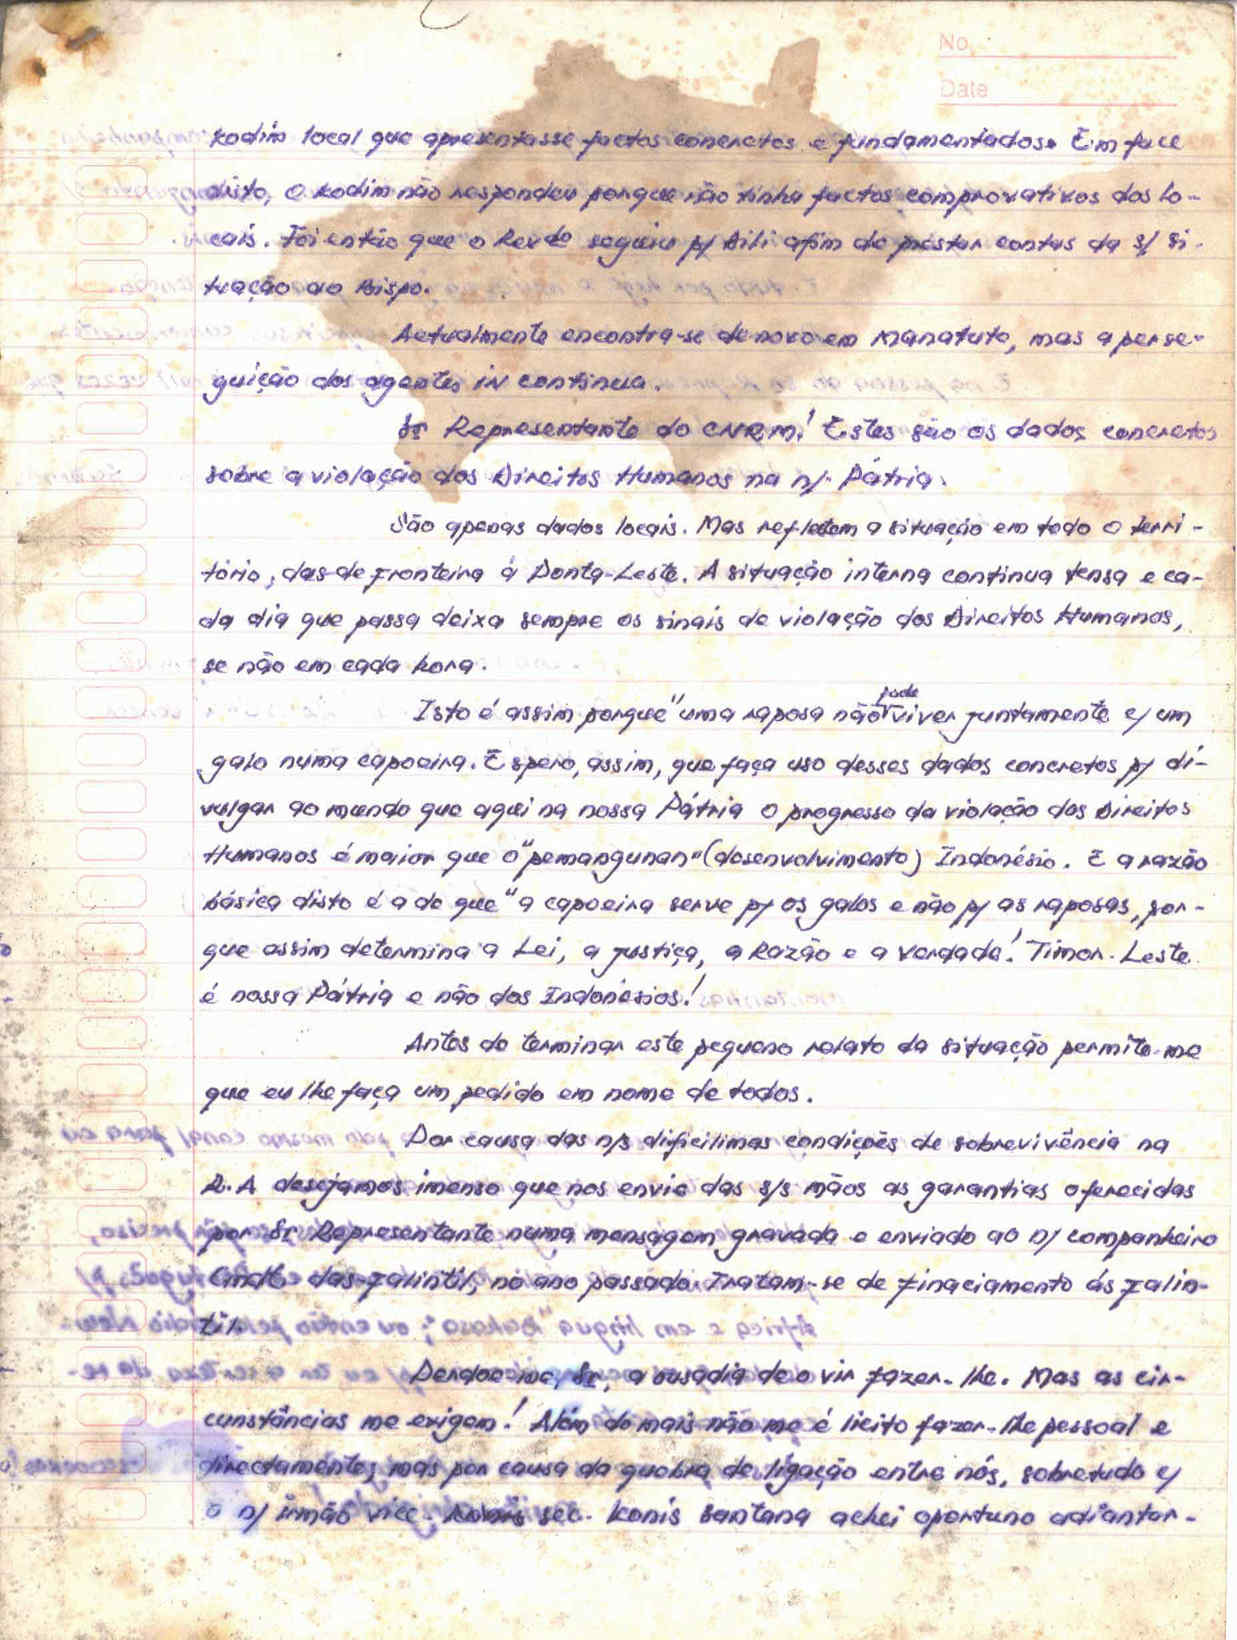 No.
Date
kodim local que apresentasse factos concretos e fundamentados. Em face
disto, o kodim não respondeu porque não tinha factos comprovativos dos lo-
cais. Foi então que o Revdo seguiu p/ Dili afim de prestar contas da s/ si-
tuação ao Bispo.
Actualmente encontra-se de novo em Manatuto, mas a perse-
guição dos agentes IN continua.
Sr Representante do CNRM! Estes são os dados concretos
sobre a violação dos Direitos Humanos na n/. Pátria.
São apenas dados locais. Mas refletem a situação em todo o terri-
tório, das-de fronteira á Ponta-Leste. A situação interna continua tensa e ca-
da dia que passa deixa sempre os sinais de violação dos Direitos Humanos,
se não em cada hora.
Isto é assim porque "uma raposa não pode viver juntamente c/ um
galo numa capoeira. Espero, assim, que faça uso desses dados concretos p/ di-
vulgar ao mundo que aqui na nossa Pátria o progresso da violação dos Direitos
Humanos é maior que o "pemangunan" (desenvolvimento) Indonésio. E a razão
básica disto é a de que "a capoeira serve p/ os galos e não p/ as raposas, por-
que assim determina a Lei, a Justiça, a Razão e a Verdade! Timor-Leste
é nossa Pátria e não dos Indonésios!
Antes de terminar este pequeno relato da situação permite-me
que eu lhe faça um pedido em nome de todos.
Por causa das n/s dificilimas condições de sobrevivência na
R.A desejamos imenso que nos envie das s/s mãos as garantias oferecidas
por Sr Representante numa mensagem gravada e enviado ao n/ companheiro
Cmdte das-Falintil, no ano passado. Tratam-se de finaciamento ás Falin-
til.
Perdoe-me, Sr, a ousadia de o vir fazer-lhe. Mas as cir-
cunstâncias me exigem! Além do mais não me é licito fazer-lhe pessoal e
directamente, mas por causa da quebra de ligação entre nós, sobretudo c/
o n/ irmão vice- sec. Konis Santana achei oportuno adiantar-